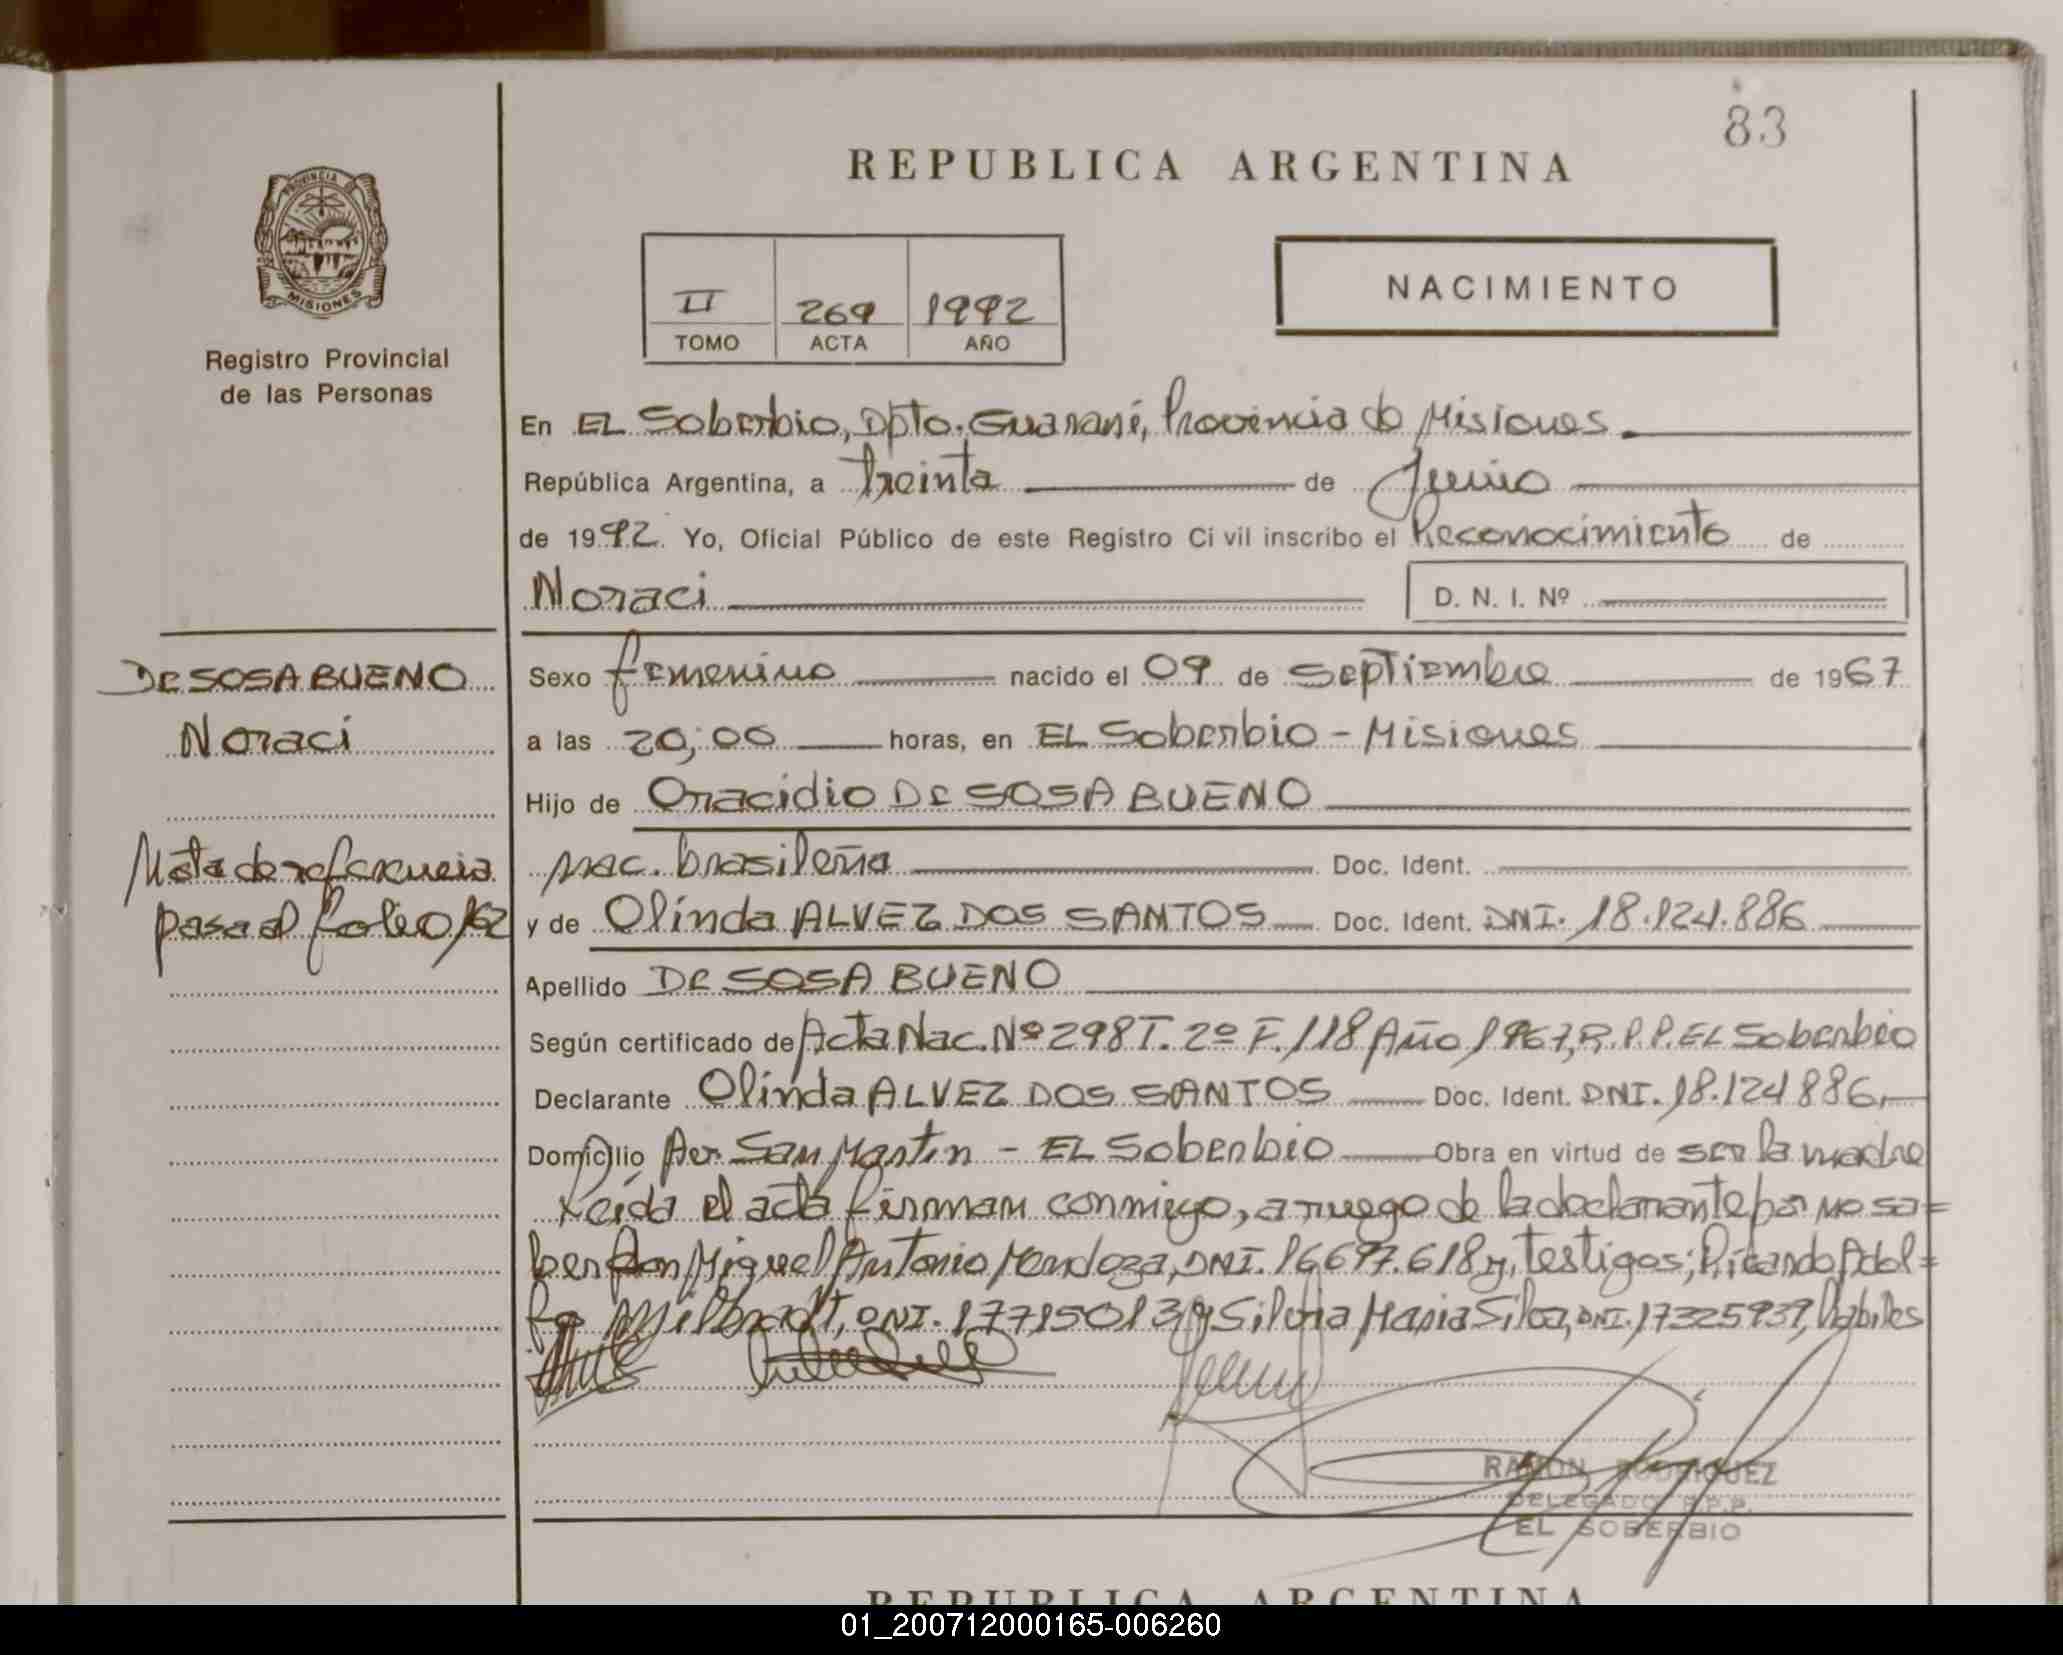 83
REPUBLICA ARGENTINA
PROVINCIA DE
MISIONES
Registro Provincial
de las Personas
II 269 1992
TOMO ACTA AÑO
NACIMIENTO
En EL Soberbio, Dpto. Guaraní, Provincia de Misiones.
República Argentina, a treinta de Junio
de 1992. Yo, Oficial Público de este Registro Ci vil inscribo el Reconocimiento de
Noraci D. N. I. Nº
DE SOSA BUENO
Noraci
Nota de referencia
pasa al folio 162
Sexo femenino nacido el 09 de Septiembre de 1967
a las 20,00 horas, en EL Soberbio - Misiones
Hijo de Oracidio DE SOSA BUENO
nac. brasileña Doc. Ident.
y de Olinda ALVEZ DOS SANTOS Doc. Ident. DNI. 18.124.886
Apellido DE SOSA BUENO
Según certificado de Acta Nac. Nº 298 T. 2º F. 118 Año 1967, R.P.P. EL Soberbio
Declarante Olinda ALVEZ DOS SANTOS Doc. Ident. DNI. 18.124886,
Domicilio Av. San Martin - EL Soberbio Obra en virtud de ser la madre
Leída el acta firman conmigo, a ruego de la declarante por no sa=
ber Don Miguel Antonio Mendoza, DNI. 16697.618 y, testigos; Ricardo Adol=
fo Milbradt, DNI. 17715013 y Silvia Maria Silva, DNI. 17325939, habiles
RAMON RODRIGUEZ
DELEGADO R.P.P.
EL SOBERBIO
REPUBLICA ARGENTINA
01_200712000165-006260